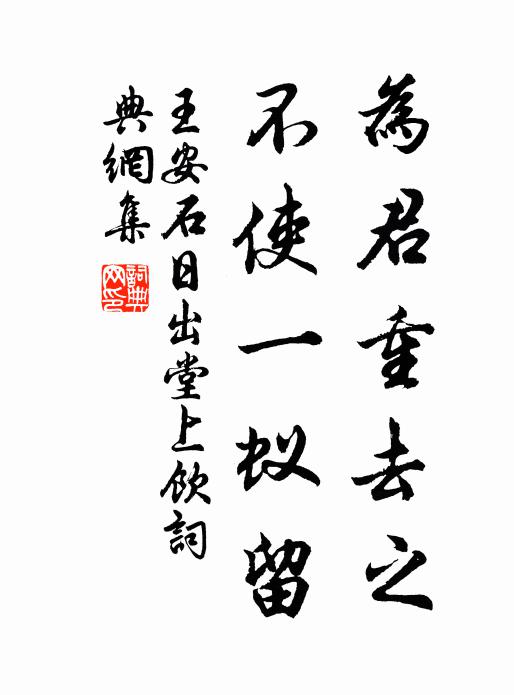 為君重去之
不使一蚁留
王安石日出堂上飲詞
典網集
詞典网印